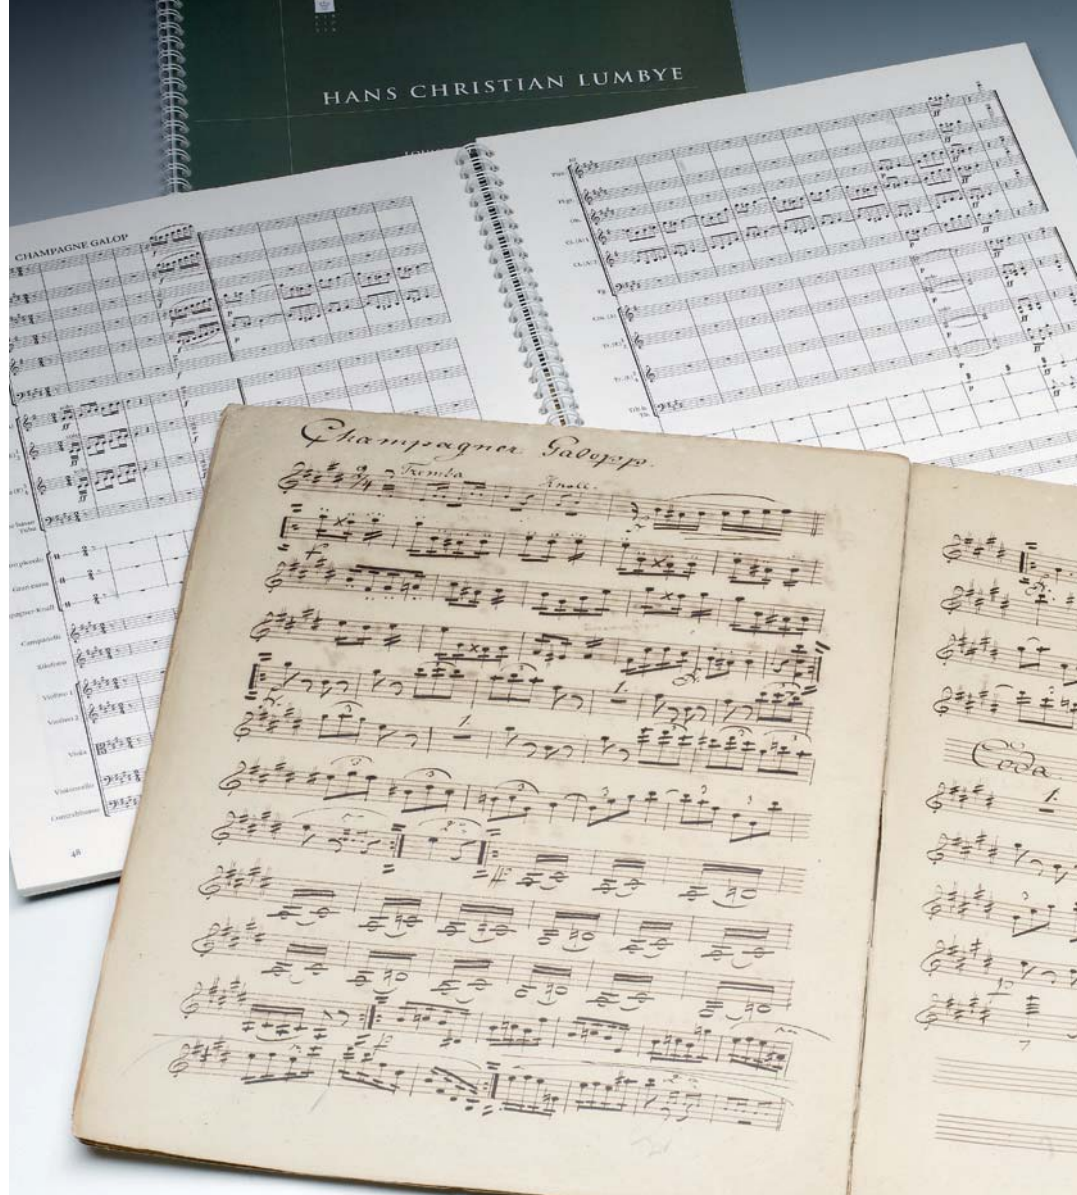 HANS CHRISTIAN LUMBYE
CHAMPAGNE GALOP
Picc.
Ob.
Fg.
Gran cassa
Campanelli
Xilofono
Violino 1
Violino 2
Viola
Violoncello
Contrabbasso
48
Champagner Galopp.
Tromba
Knall.
Coda.